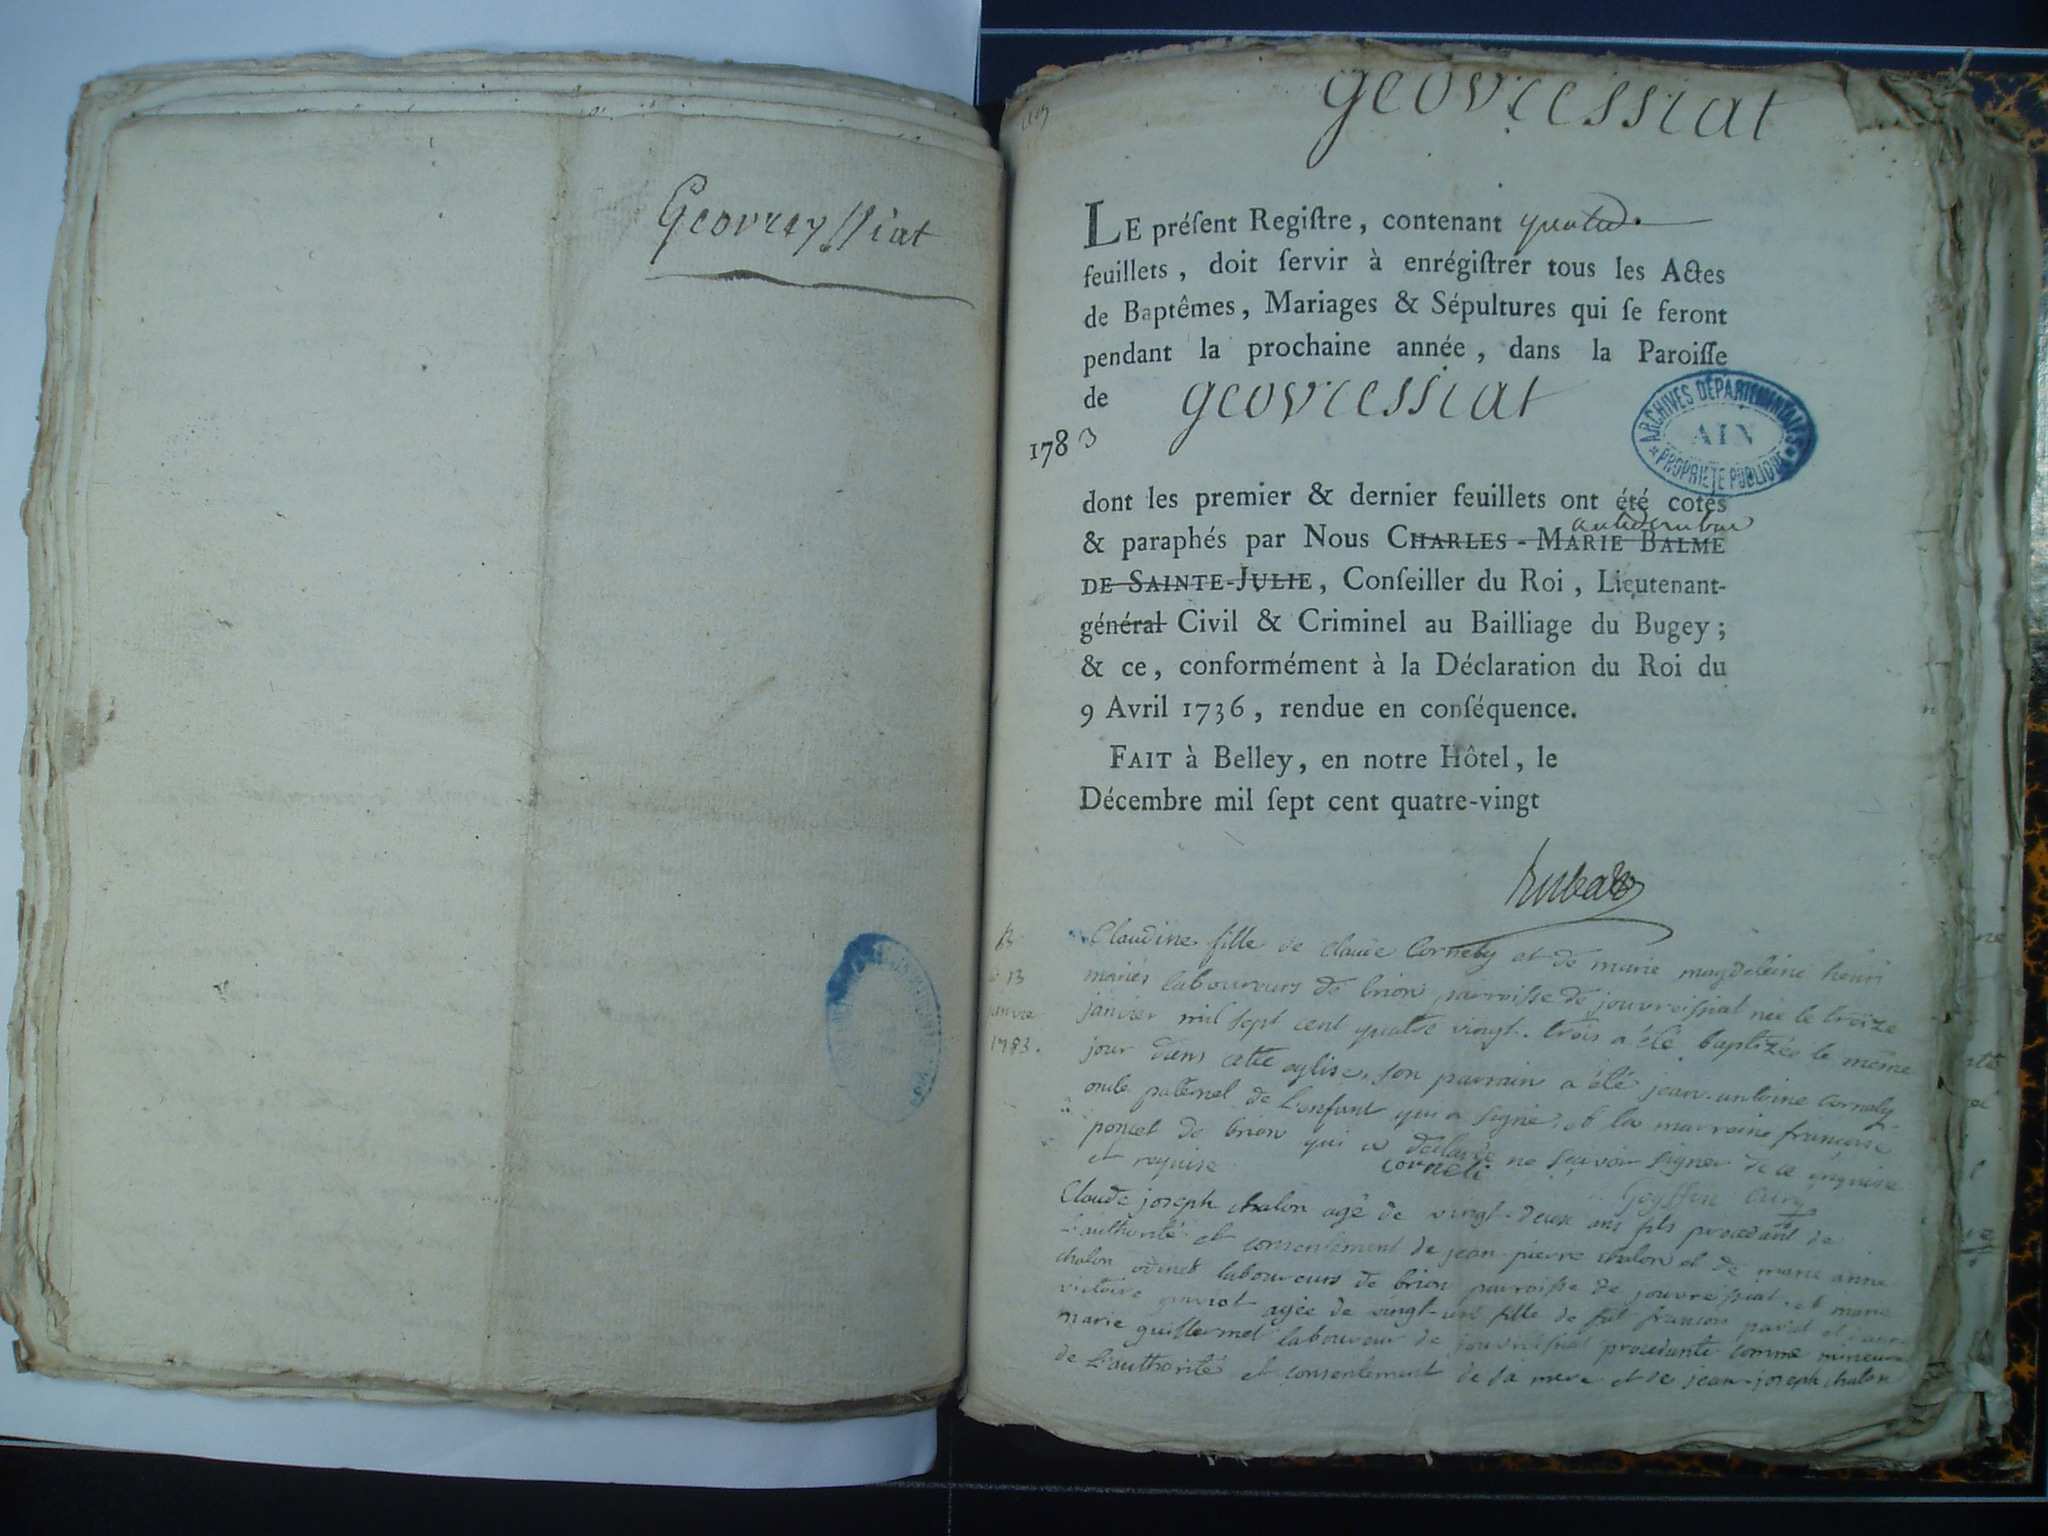 Geovreyssiat
geovressiat
LE préſent Regiſtre, contenant quatre
feuillets, doit ſervir à enrégiſtrer tous les Actes
de Baptêmes, Mariages & Sépultures qui ſe feront
pendant la prochaine année, dans la Paroiſſe
de geovressiat
1783
ARCHIVES DÉPARTEMENTALES
AIN
PROPRIETE PUBLIQUE
dont les premier & dernier feuillets ont été cotés
& paraphés par Nous CHARLES-MARIE BALME
DE SAINTE-JULIE, Conſeiller du Roi, Lieutenant-
général Civil & Criminel au Bailliage du Bugey;
& ce, conformément à la Déclaration du Roi du
9 Avril 1736, rendue en conſéquence.
FAIT à Belley, en notre Hôtel, le
Décembre mil ſept cent quatre-vingt
B
le 13
janvier
1783.
Claudine fille de claude Cornely et de marie magdeleine henri
mariés laboureurs de brion parroisse de jouvressiat née le treize
janvier mil sept cent quatre vingt-trois a été baptizée le même
jour dans cette eglise, son parrain a été jean-antoine Cornely
oncle paternel de l'enfant qui a signé, et la marraine francoise
poncet de brion qui a déclaré ne sçavoir signer de ce enquise
et requise corneli
Geyffon Curé
Claude joseph chalon agé de vingt-deux ans fils procedant de
l'authorité et consentement de jean-pierre chalon et de marie anne
chalon laboureurs de brion parroisse de jouvressiat, et marie
victoire agée de vingt-un fille de fut francois et
marie guillermet laboureur de jouvressiat procedante comme mineure
de l'authorité et consentement de sa mere et de jean-joseph chalon